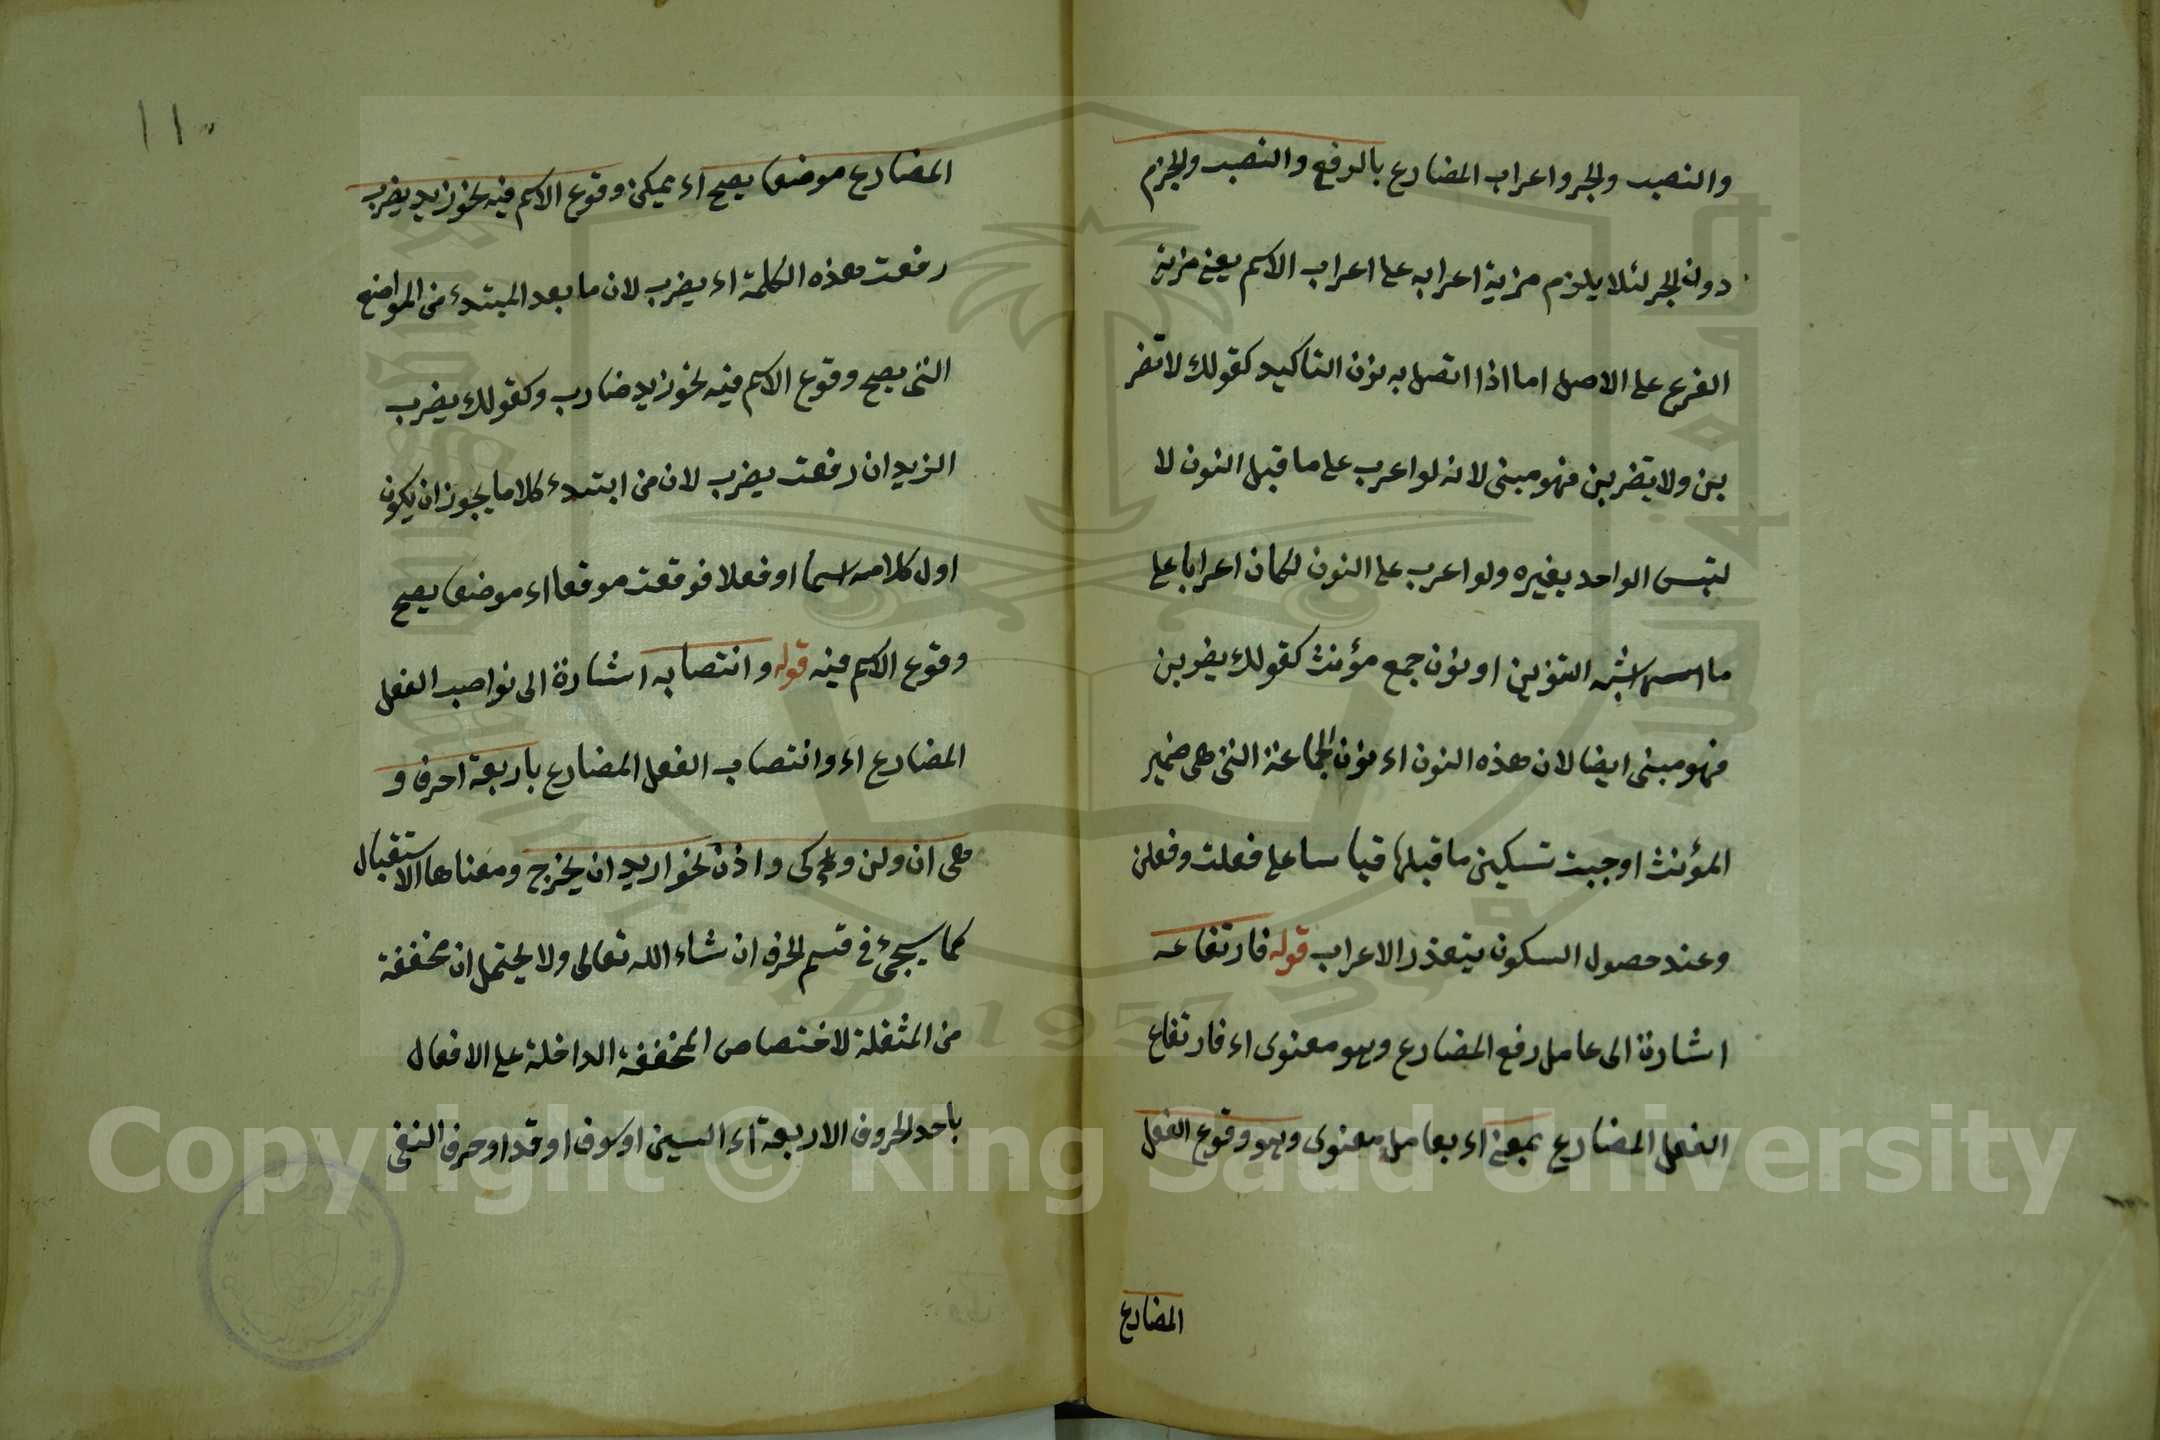 والنصب والجر واعراب المضارع بالرفع والنصب والجزم
دون الجر لئلا يلزم مزية اعرابه على اعراب الاسم يعنى مزية
الفرع على الاصل اما اذا اتصل به نون التاكيد كقولك لا تضر
بن ولا تضربن فهو مبنى لانه لو اعرب على ما قبل النون لا
لتبس الواحد بغيره ولو اعرب على النون لكان اعرابا على
ما اشبه التنوين او نون جمع مؤنث كقولك يضربن
فهو مبنى ايضا لان هذه النون اء نون الجماعة التى هى ضمير
المؤنث اوجبت تسكين ما قبلها قياسا على فعلت وفعلن
وعند حصول السكون يتعذر الاعراب قوله فارتفاعه
اشارة الى عامل رفع المضارع وهو معنوى اء فارتفاع
الفعل المضارع بمعنى اء بعامل معنوى وهو وقوع الفعل
المضارع
١١٠
المضارع موضعا يصح اء يمكن وقوع الاسم فيه نحو زيد يضرب
رفعت هذه الكلمة اء يضرب لان ما بعد المبتدء من المواضع
التى يصح وقوع الاسم فيه نحو زيد ضارب وكقولك يضرب
الزيدان رفعت يضرب لان من ابتدء كلاما يجوز ان يكون
اول كلامه اسما او فعلا فوقعت موقعا اء موضعا يصح
وقوع الاسم فيه قوله وانتصابه اشارة الى نواصب الفعل
المضارع اء وانتصاب الفعل المضارع باربعة احرف و
هى ان ولن وكى واذن نحو اريد ان يخرج ومعناها الاستقبال
كما سيجئ فى قسم الحرف ان شاء الله تعالى ولا يحتمل ان مخففة
من المثقلة لاختصاص المخففة الداخلة على الافعال
باحد الحروف الاربعة اء السين او سوف او قد او حرف النفى
Copyright © King Saud University
1957